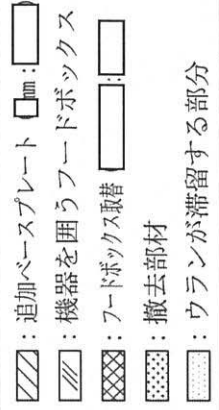 ：追加ベースプレート □mm：
：機器を囲うフードボックス
：フードボックス取替 ：
：撤去部材
：ウランが滞留する部分